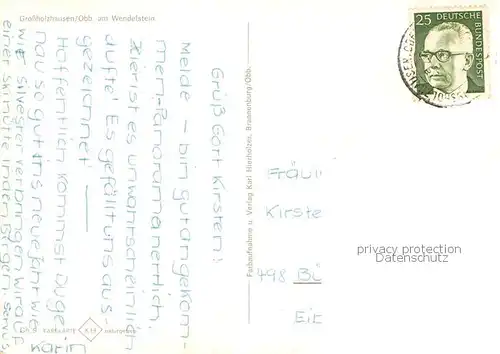 Großholzhausen/Obb. am Wendelstein
Grüß Gott Kirsten!
Melde – bin gut angekom-
men. Panorama herrlich.
Hier ist es unwahrscheinlich
dufte! Es gefällt uns aus-
gezeichnet!
Hoffentlich kommst Du ge-
nau so gut ins neue Jahr wie
wir. Silvester verbringen wir auf
einer Skihütte in den Bergen. Servus
Karin
Farbaufnahme u. Verlag Karl Nienholzer, Brannenburg/Obb.
25 DEUTSCHE
BUNDESPOST
Fräul
Kirste
498 Bü
privacy protection
Datenschutz